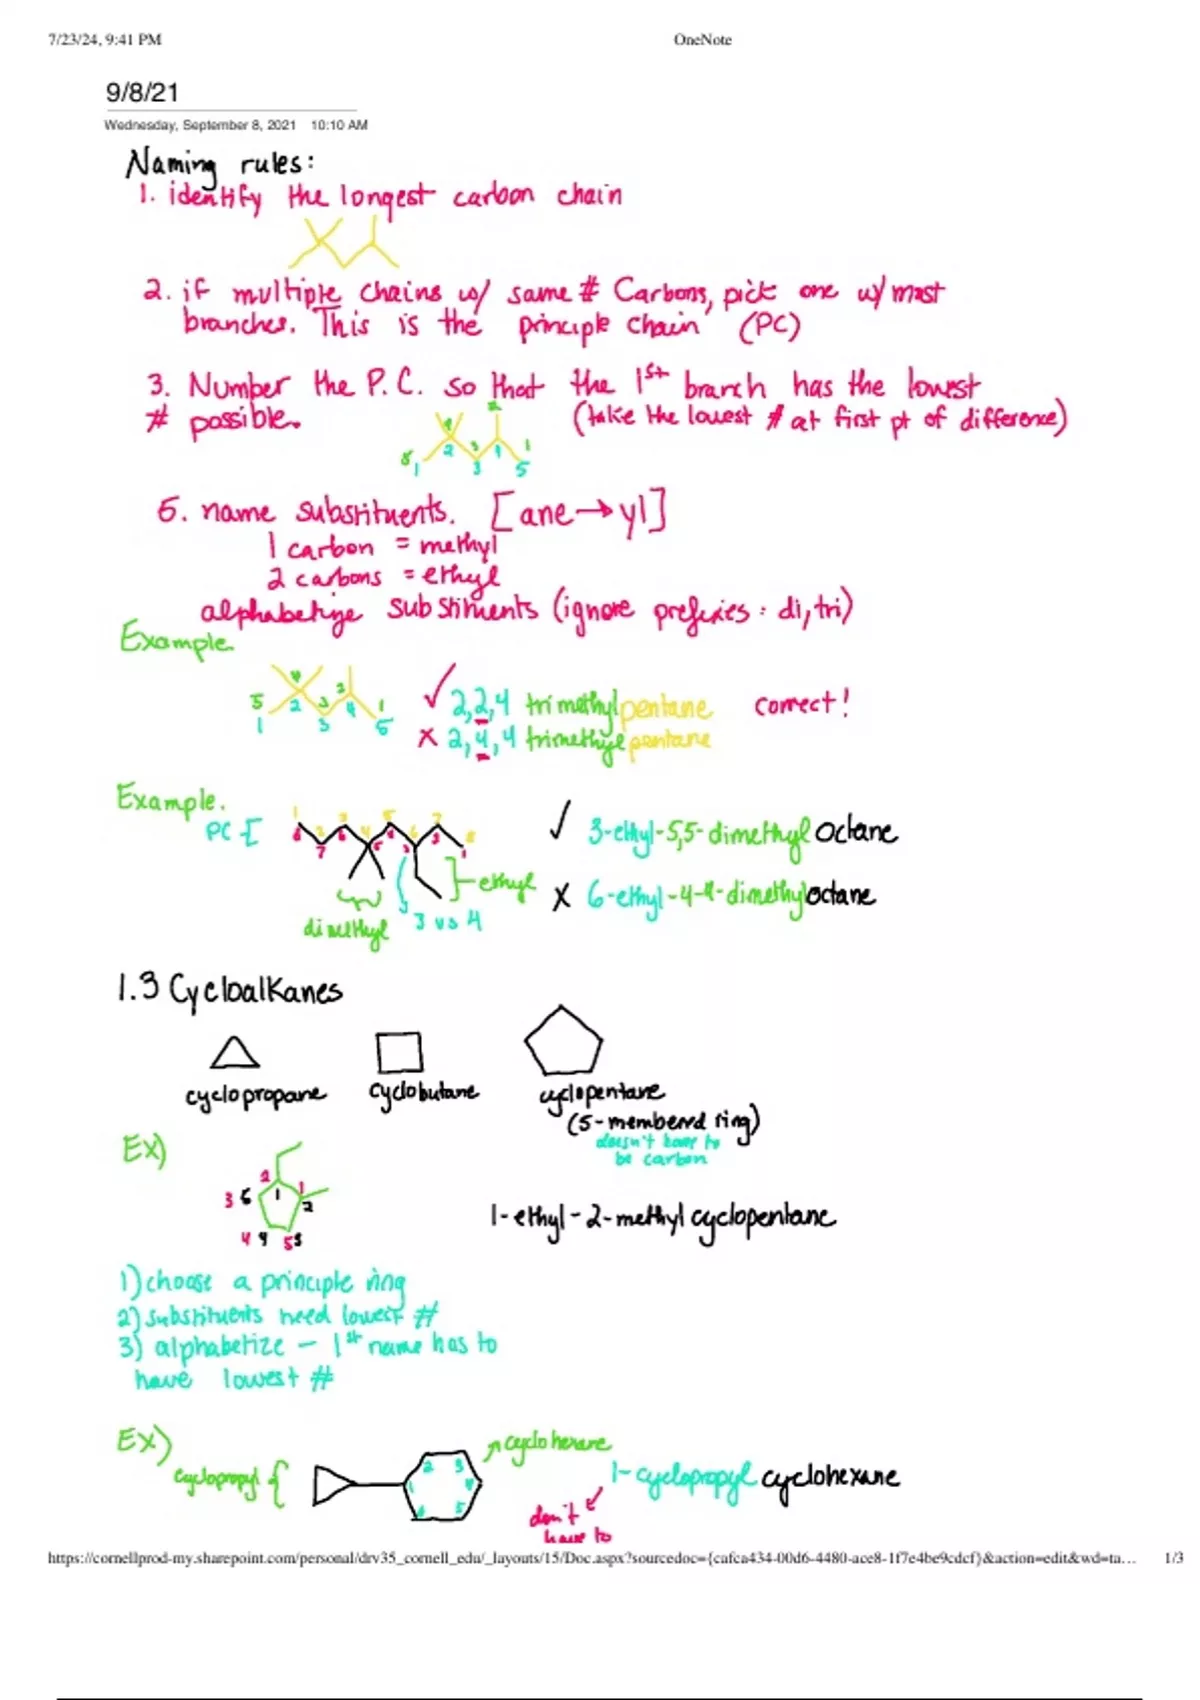 7/23/24, 9:41 PM
OneNote
9/8/21
Wednesday, September 8, 2021 10:10 AM
Naming rules:
1. identify the longest carbon chain
2. if multiple chains w/ same # Carbons, pick one w/ most
branches. This is the principle chain (PC)
3. Number the P.C. so that the 1st branch has the lowest
# possible. (take the lowest # at first pt of difference)
4 2
2 3 4 1
5 1 3 5
5. name substituents. [ane→yl]
1 carbon = methyl
2 carbons = ethyl
alphabetize substituents (ignore prefixes: di, tri)
Example.
5 4 3 2 1
1 2 3 4 5
✓ 2,2,4 trimethylpentane correct!
x 2,4,4 trimethylpentane
Example.
PC
1 2 3 4 5 6 7 8
8 7 6 5 4 3 2 1
✓ 3-ethyl-5,5-dimethyl octane
ethyl
x 6-ethyl-4-4-dimethyloctane
dimethyl
3 vs 4
1.3 Cycloalkanes
cyclopropane cyclobutane cyclopentane
(5-membered ring)
doesn't have to
be carbon
Ex)
2 1
3 5 1 2
4 4 5 3
1-ethyl-2-methyl cyclopentane
1) choose a principle ring
2) substituents need lowest #
3) alphabetize - 1st name has to
have lowest #
Ex)
cyclopropyl
cyclohexane
2 3
1 4
6 5
1-cyclopropyl cyclohexane
don't
have to
https://cornellprod-my.sharepoint.com/personal/drv35_cornell_edu/_layouts/15/Doc.aspx?sourcedoc={cafca434-00d6-4480-ace8-1f7e4be9cdcf}&action=edit&wd=ta… 1/3